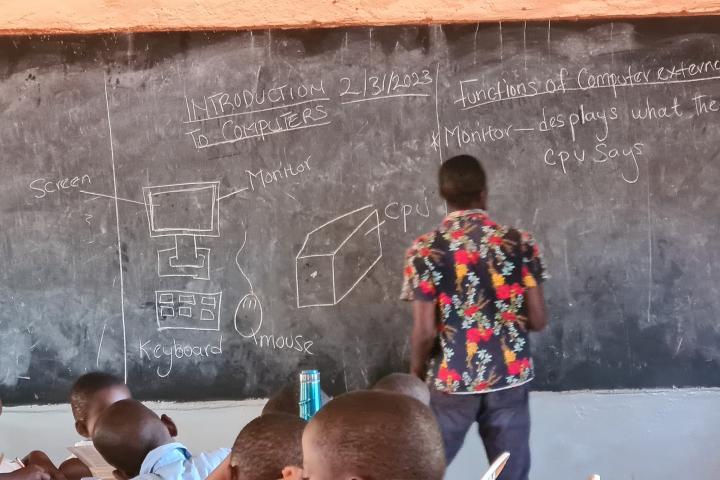 INTRODUCTION 2/31/2023
To COMPUTERS
Screen
Monitor
Cpu
Keyboard
mouse
Functions of Computer externa
* Monitor — desplays what the
Cpu Says